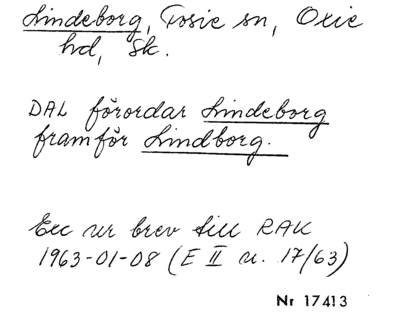 Lindeborg, Fosie sn, Oxie
hd, Sk.
DAL förordar Lindeborg
framför Lindborg.
Exc ur brev till RAK
1963-01-08 (E II u. 17/63)
Nr 17413